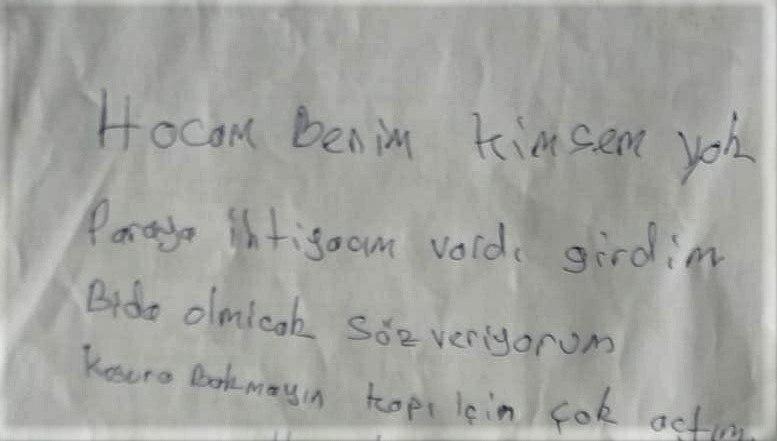 Hocam Benim kimsem yok
Paraya ihtiyacım vardı girdim
Bıda olmicak Söz veriyorum
kusura Bakmayın kapı için çok